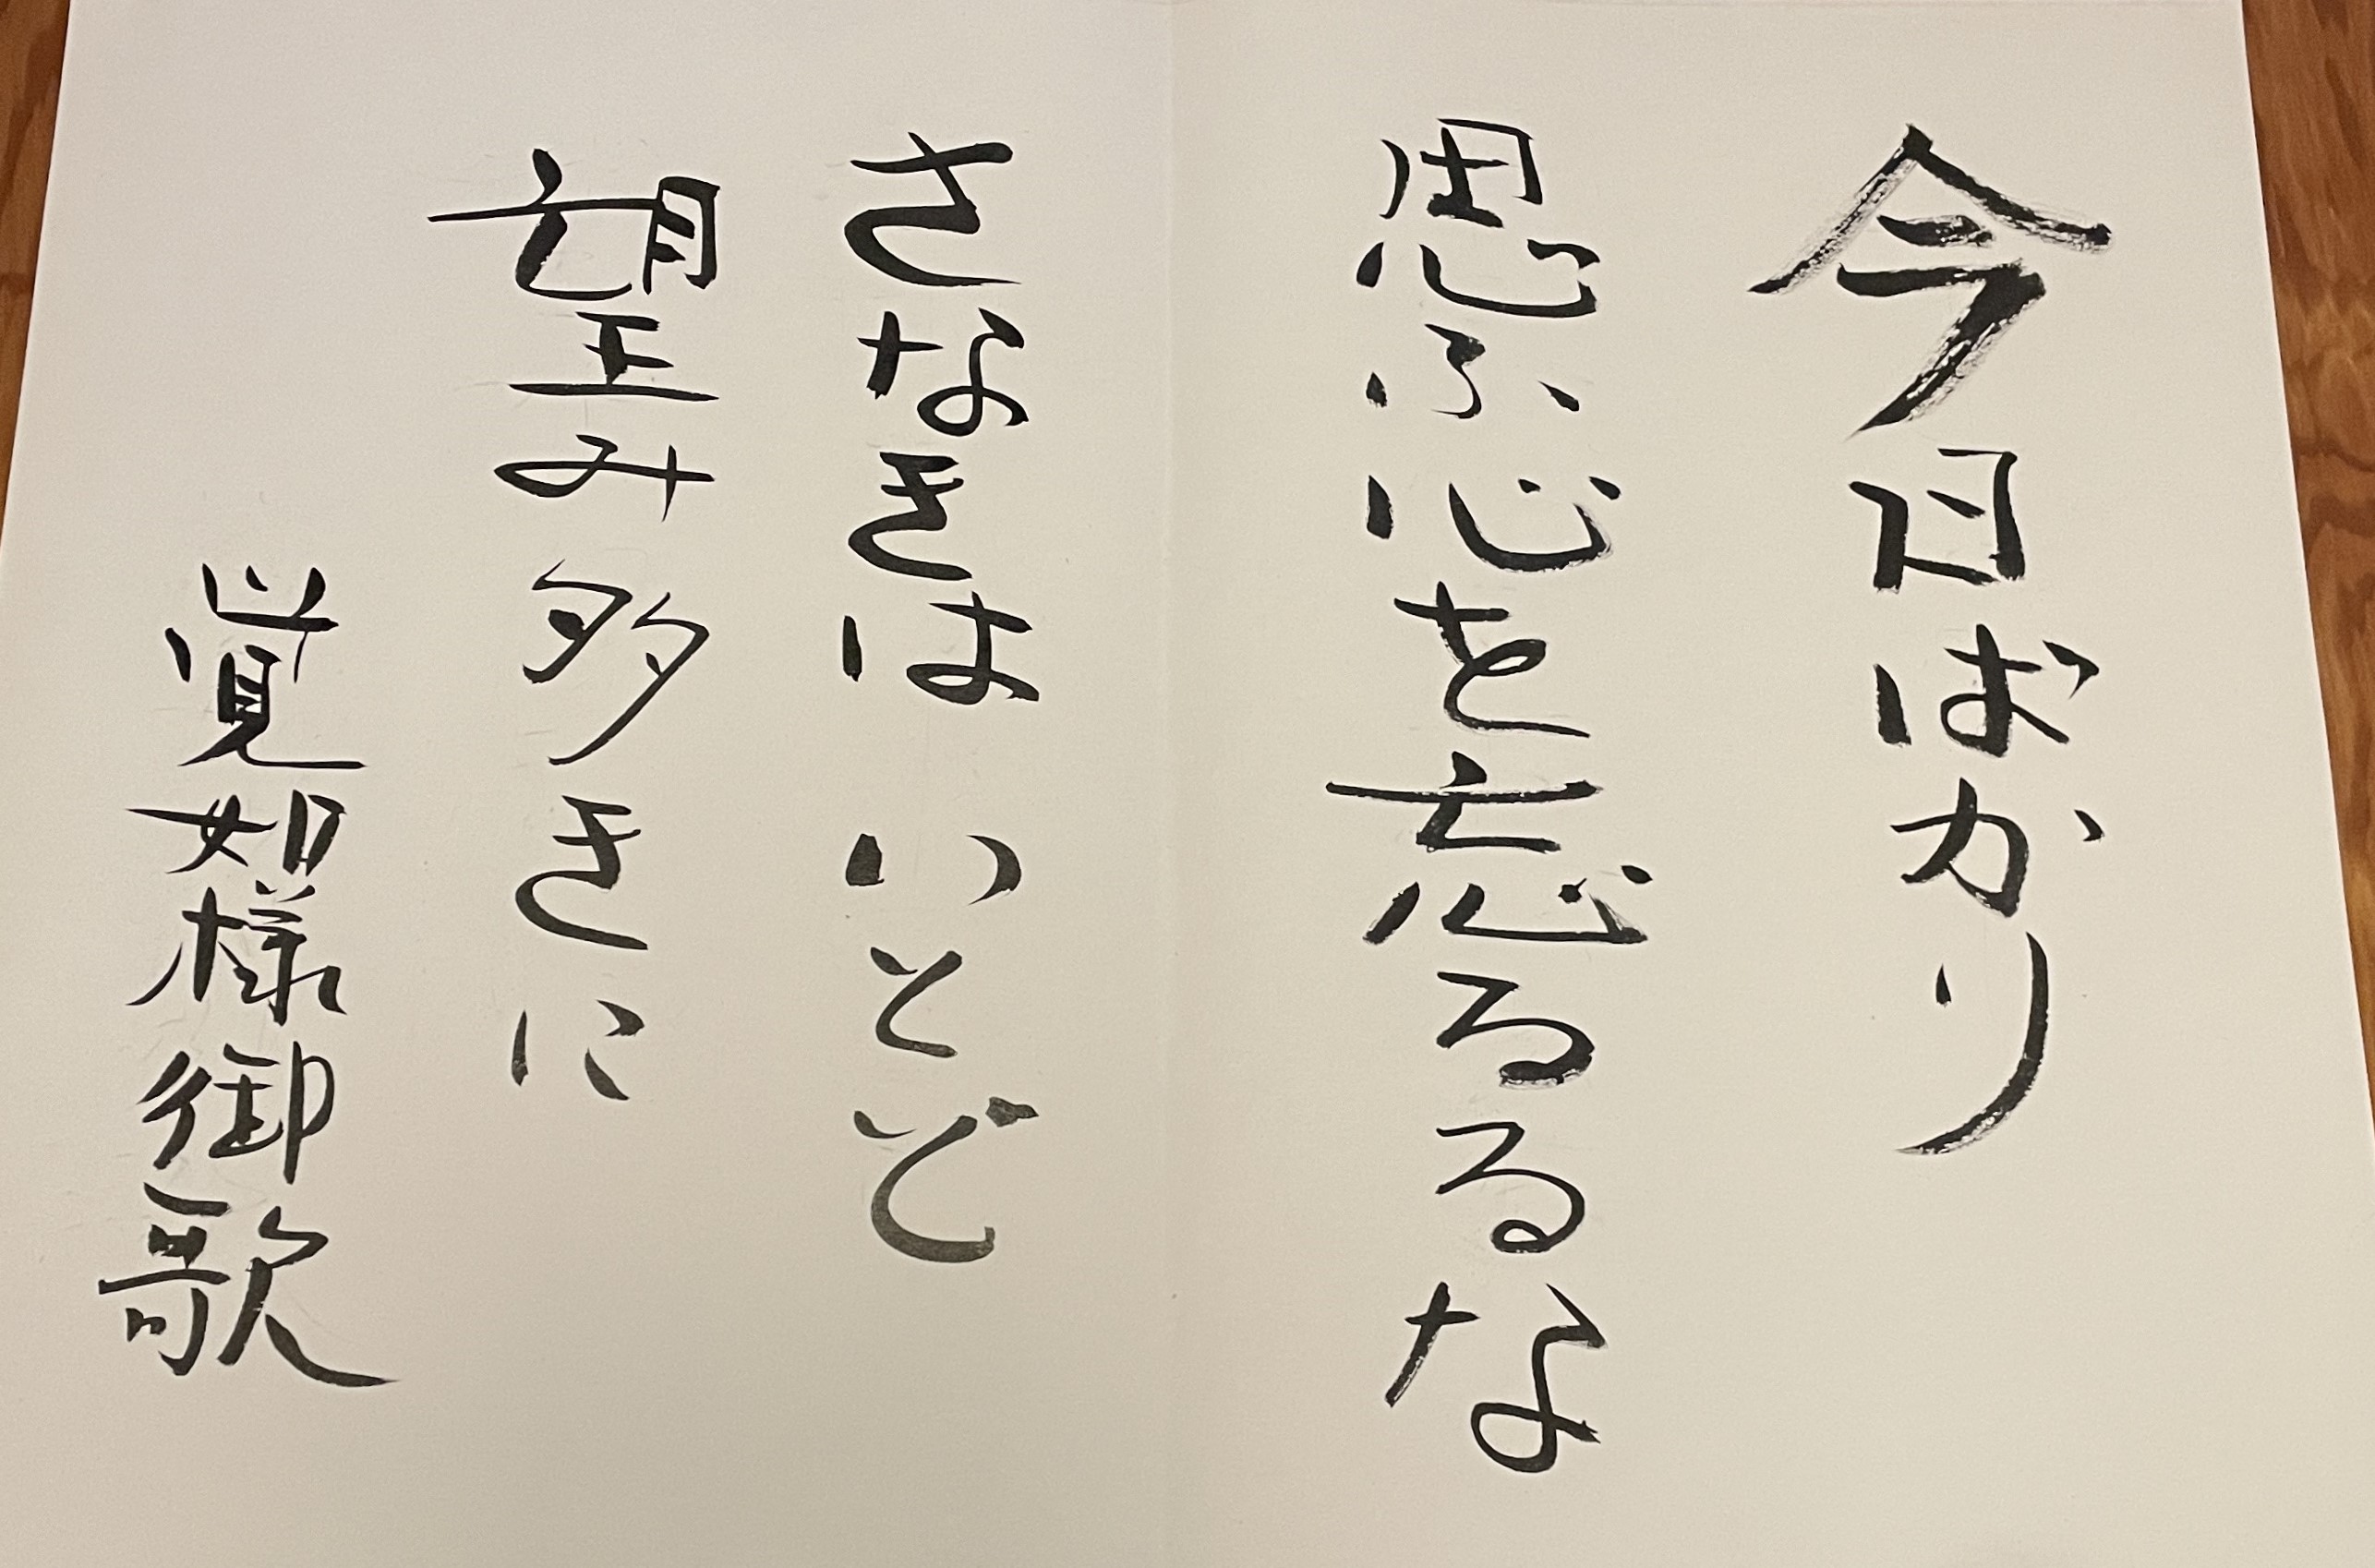 今日ばかり
思ふ心を忘るるな
さなきは いとど
望み多きに
覚如様御歌